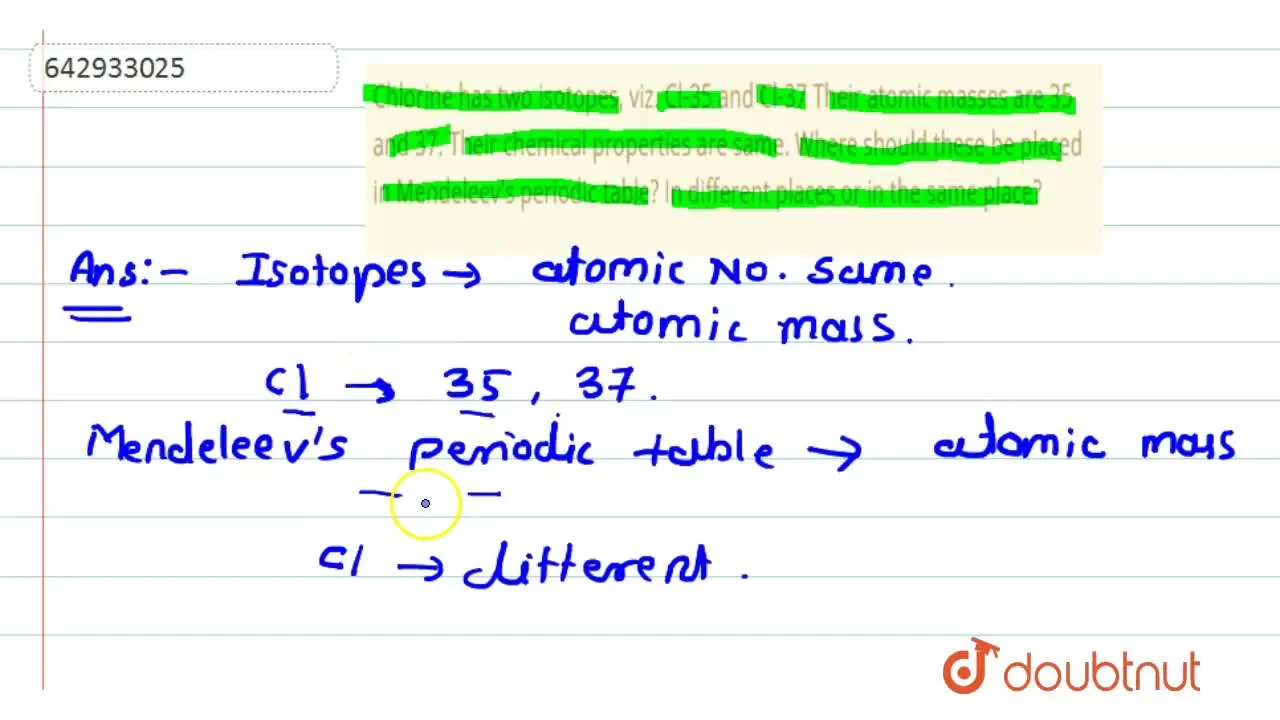 642933025
Chlorine has two isotopes, viz. Cl-35 and Cl-37 Their atomic masses are 35
and 37. Their chemical properties are same. Where should these be placed
in Mendeleev's periodic table? In different places or in the same place?
Ans:- Isotopes → atomic No. same.
atomic mass.
Cl → 35, 37.
Mendeleev's periodic table → atomic mass
Cl → different.
doubtnut